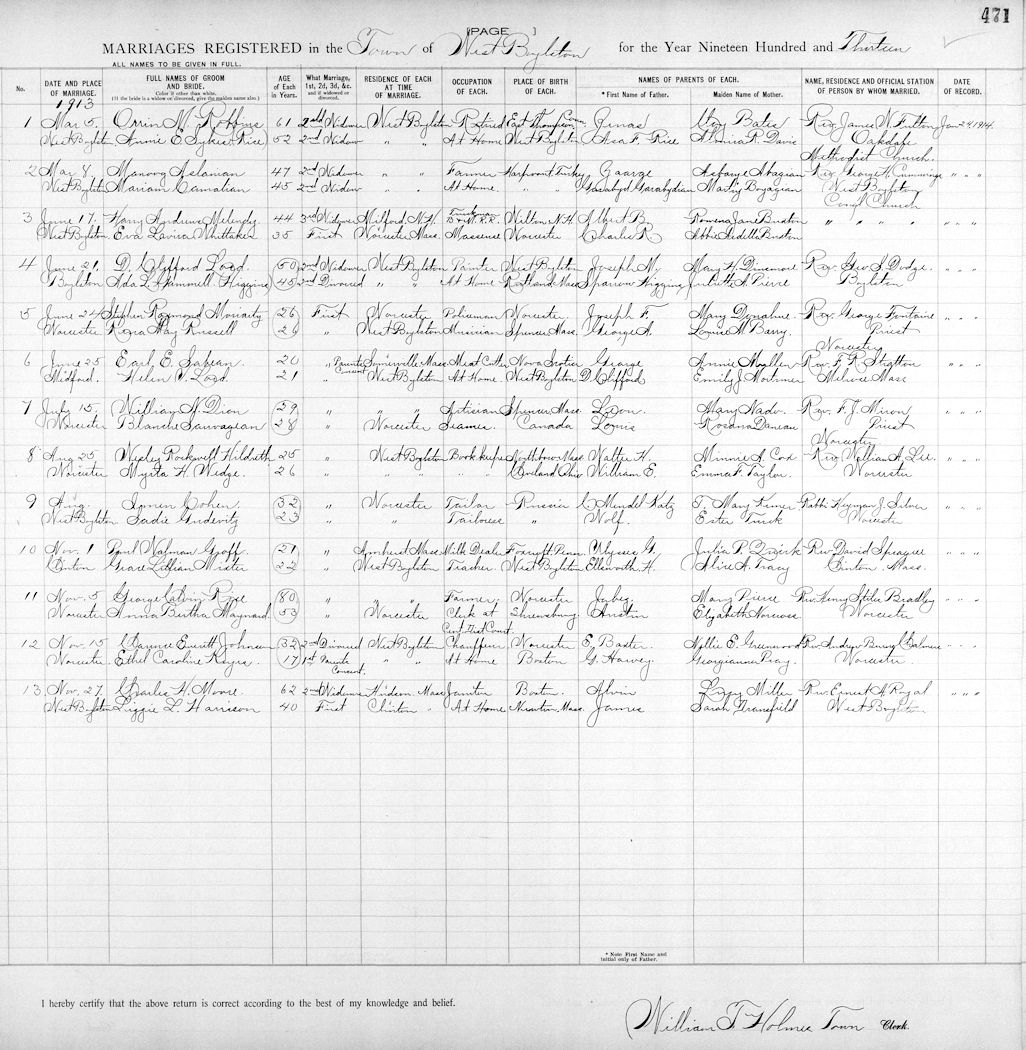 471
[PAGE ]
MARRIAGES REGISTERED in the Town of West Boylston for the Year Nineteen Hundred and Thirteen
ALL NAMES TO BE GIVEN IN FULL.
No. DATE AND PLACE OF MARRIAGE. FULL NAMES OF GROOM AND BRIDE. (If the bride is a widow or divorced, give the maiden name also.) AGE of Each in Years. What Marriage, 1st, 2d, 3d, &c. and if widowed or divorced. RESIDENCE OF EACH AT TIME OF MARRIAGE. OCCUPATION OF EACH. PLACE OF BIRTH OF EACH. NAMES OF PARENTS OF EACH. * First Name of Father. Maiden Name of Mother. NAME, RESIDENCE AND OFFICIAL STATION OF PERSON BY WHOM MARRIED. DATE OF RECORD.
Color if other than white.
1913
1 Mar 5. Orrin N. Robbins 61 2nd Widower West Boylston Retired East Thompson Conn. Bates Rev. James N. Fulton Jan 24, 1914.
West Boylston Annie E. Sykes (Rice) 52 2nd Widow " " At Home West Boylston Asa F. Rice Davis Oakdale
Methodist Church.
2 Mar 8, Manoog Aslanian 47 2nd Widower " " Farmer Harpoot Turkey Abagian Rev. George H. Cummings " " "
West Boylston Mariam Camalian 45 2nd Widow " " At Home. " " Garabydian Boyagian West Boylston
Cong'l Church
3 June 17. Harry Andrews Melendy 44 3rd Widower Milford, N.H. B & M. R.R. Wilton N.H. Albert B. Rowena Jane Buxton " " " " " " "
West Boylston. Eva Lavina Whittaker 35 First Worcester Mass. Masseuse Worcester Charles R. Abbie Buxton
4 June 21. D. Clifford Lord. 50 2nd Widower West Boylston Painter West Boylston Joseph N. Mary H. Dinsmore Rev. Geo. S. Dodge. " " "
Boylston Ida L. Hammell (Higgins) 45 2nd Divorced " " At Home Rutland Mass. Sparrow Higgins Juliette A. Pierce Boylston
5 June 24 Stephen Raymond Moriarty 26 First Worcester Policeman Worcester. Joseph F. Mary Donahue. Rev. George Fontaine " " "
Worcester Rosa May Russell 26 " West Boylston Musician Spencer Mass. George A. Louise M. Barry. Priest
Worcester
6 June 25 Earl E. Sabean 20 " Parents Consent Somerville Mass. Meat Cutter Nova Scotia George Annie Rev. F. R. Stratton " " "
Medford. Helen V. Lord. 21 " West Boylston At Home. West Boylston D. Clifford Emily J. Mortimer Melrose Mass
7 July 15. William H. Dion 29 " " " Artisian Spencer Mass. Leon. Mary Nado. Rev. F. J. Miron " " "
Worcester Blanche Sauvagean 28 " Worcester Seames. Canada Louis Rosanna Daneau Priest
Worcester
8 Aug 25 Wesley Rockwell Hildreth 25 " West Boylston Bookkeeper Northboro Mass. Walter H. Minnie A. Cox Rev. William A. Lee. " " "
Worcester Myrta H. Wedge. 26 " Cleveland Ohio William E. Emma F. Taylor. Worcester
9 Aug. Cohen. 32 " Worcester Tailor Russia Mendel Katz T. Mary Rabbi Heyman J. Silver " " "
West Boylston Sadie Gudevitz 23 " " Tailoress " Wolf. Ester Turck Worcester
10 Nov. 1 Paul Walman Groff. 21 " Amherst Mass. Milk Dealer Penn. Ulysses G. Julia P. Rev. David Sprague " " "
Clinton Grace Lillian Mixter 22 " West Boylston Teacher West Boylston Ellsworth H. Alice A. Tracy Clinton. Mass.
11 Nov. 5 George Calvin Rice 80 " " " Farmer. Worcester Jabez. Mary Pierce Rev. Henry Stiles Bradley " " "
Worcester Anna Bertha Maynard. 53 " Worcester Clerk at Shrewsbury Austin Elizabeth Norcross Worcester
Cent. Dist. Court.
12 Nov. 15 Clarence Everett Johnson 32 2nd Divorced West Boylston Chauffeur Worcester E. Baxter. Nellie E. Greenwood Rev. Andrew " " "
Worcester Ethel Caroline Keyes. 17 1st Parents Consent. " " At Home Boston G. Harvey. Georgianna Worcester.
13 Nov. 27. Charles H. Moore. 62 2nd Widower Hudson. Mass. Janitor Boston. Alvin Miller Rev. Ernest A. Royal " " "
West Boylston Lizzie L. Harrison 40 First Clinton " At Home Newton, Mass. James Sarah Gransfield West Boylston
* Note First Name and
initial only of Father.
I hereby certify that the above return is correct according to the best of my knowledge and belief.
William T. Holmes Town Clerk.